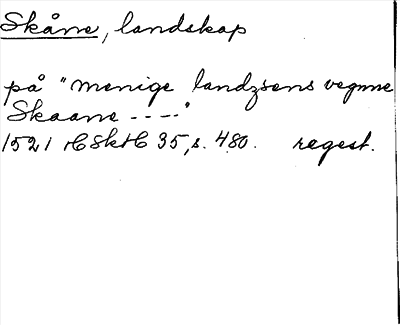 Skåne, landskap
på "menige landzsens vegnne
Skaane ----"
1521 HSkH 35, s. 480. regest.